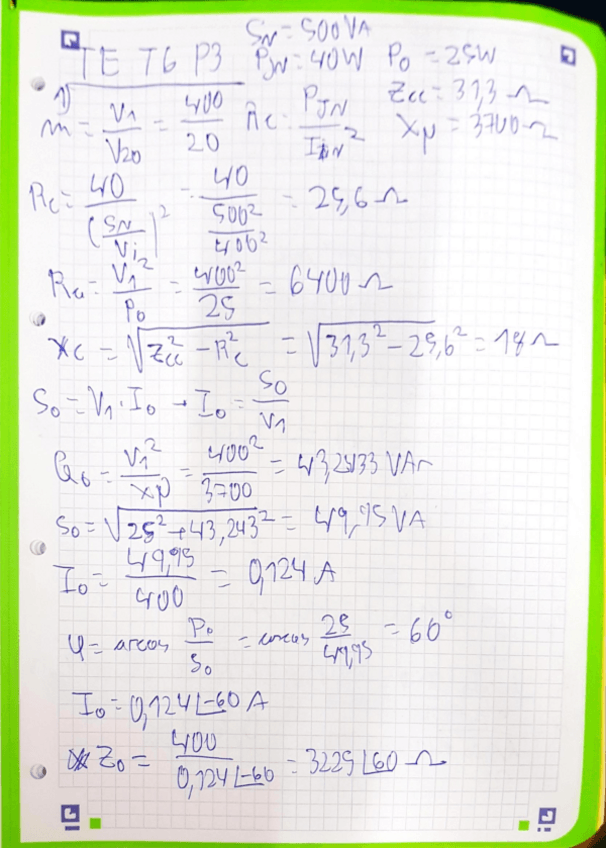 S_N = 500VA
TE T6 P3 P_JN = 40W P_0 = 25W
1) m = V_1/V_20 = 400/20 R_C = P_JN/I_1N² Z_cc = 31,3 Ω
X_μ = 3700 Ω
R_C = 40/(S_N/V_1)² = 40/(500²/400²) = 25,6 Ω
R_a = V_1²/P_0 = 400²/25 = 6400 Ω
X_C = √(Z_cc² - R_C²) = √(31,3² - 25,6²) = 18 Ω
S_0 = V_1 · I_0 → I_0 = S_0/V_1
Q_0 = V_1²/X_μ = 400²/3700 = 43,2433 VAr
S_0 = √(25² + 43,243²) = 49,95 VA
I_0 = 49,95/400 = 0,124 A
φ = arcos P_0/S_0 = arcos 25/49,95 = 60°
I_0 = 0,124 ∠-60 A
Z_0 = 400/(0,124 ∠-60) = 3225 ∠60 Ω